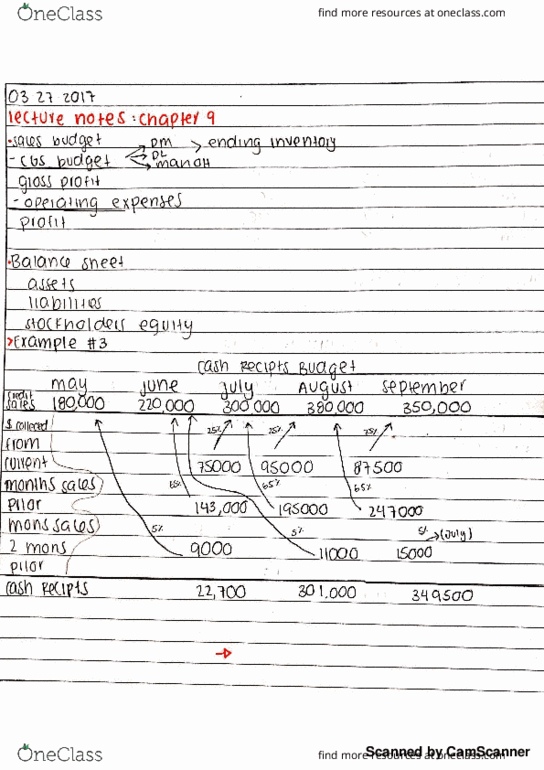 OneClass
find more resources at oneclass.com
03 27 2017
lecture notes: chapter 9
•sales budget DM > ending inventory
- CGS budget DL
man OH
gross profit
- operating expenses
profit
•Balance sheet
assets
liabilities
stockholders equity
>Example #3
cash recipts Budget
may june july August september
credit sales 180,000 220,000 300 000 380000 350,000
$ collected 25% 25% 25%
from
current 75000 95000 87500
months sales) 65% 65% 65%
prior 143,000 195000 247000
mons sales) 5% 5% 5% →(July)
2 mons 9000 11000 15000
prior
cash recipts 22,700 301,000 349500
OneClass
find more resources at oneclass.com
Scanned by CamScanner